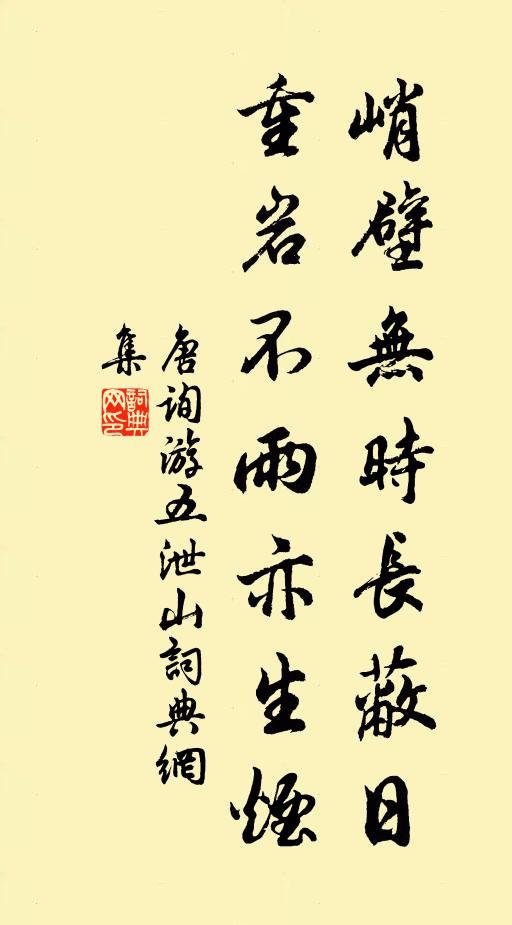 峭壁無時長蔽日
重岩不雨亦生煙
唐询游五泄山詞典網
集
詞典网印